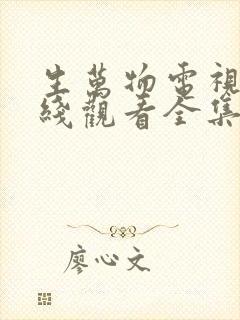 生萬物電視
綫觀看全集
廖心文